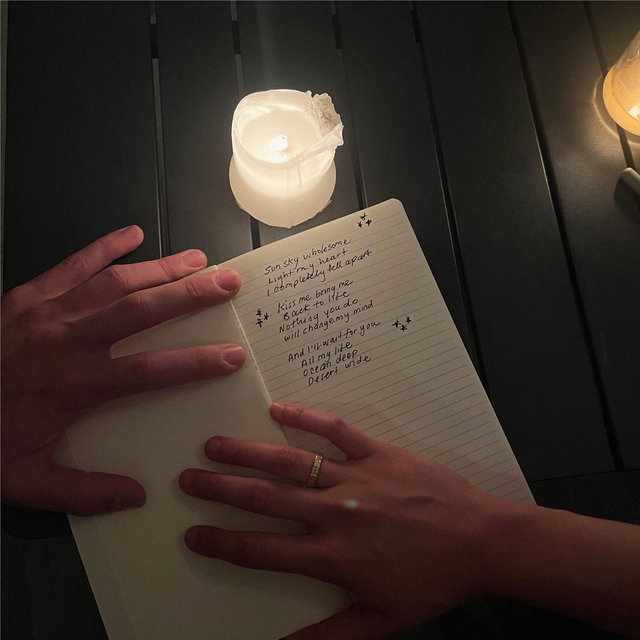 Sun sky wholesome
Light my heart
I completely fell apart
Kiss me bring me
Back to life
Nothing you do
will change my mind
And I'll wait for you
All my life
Ocean deep
Desert wide